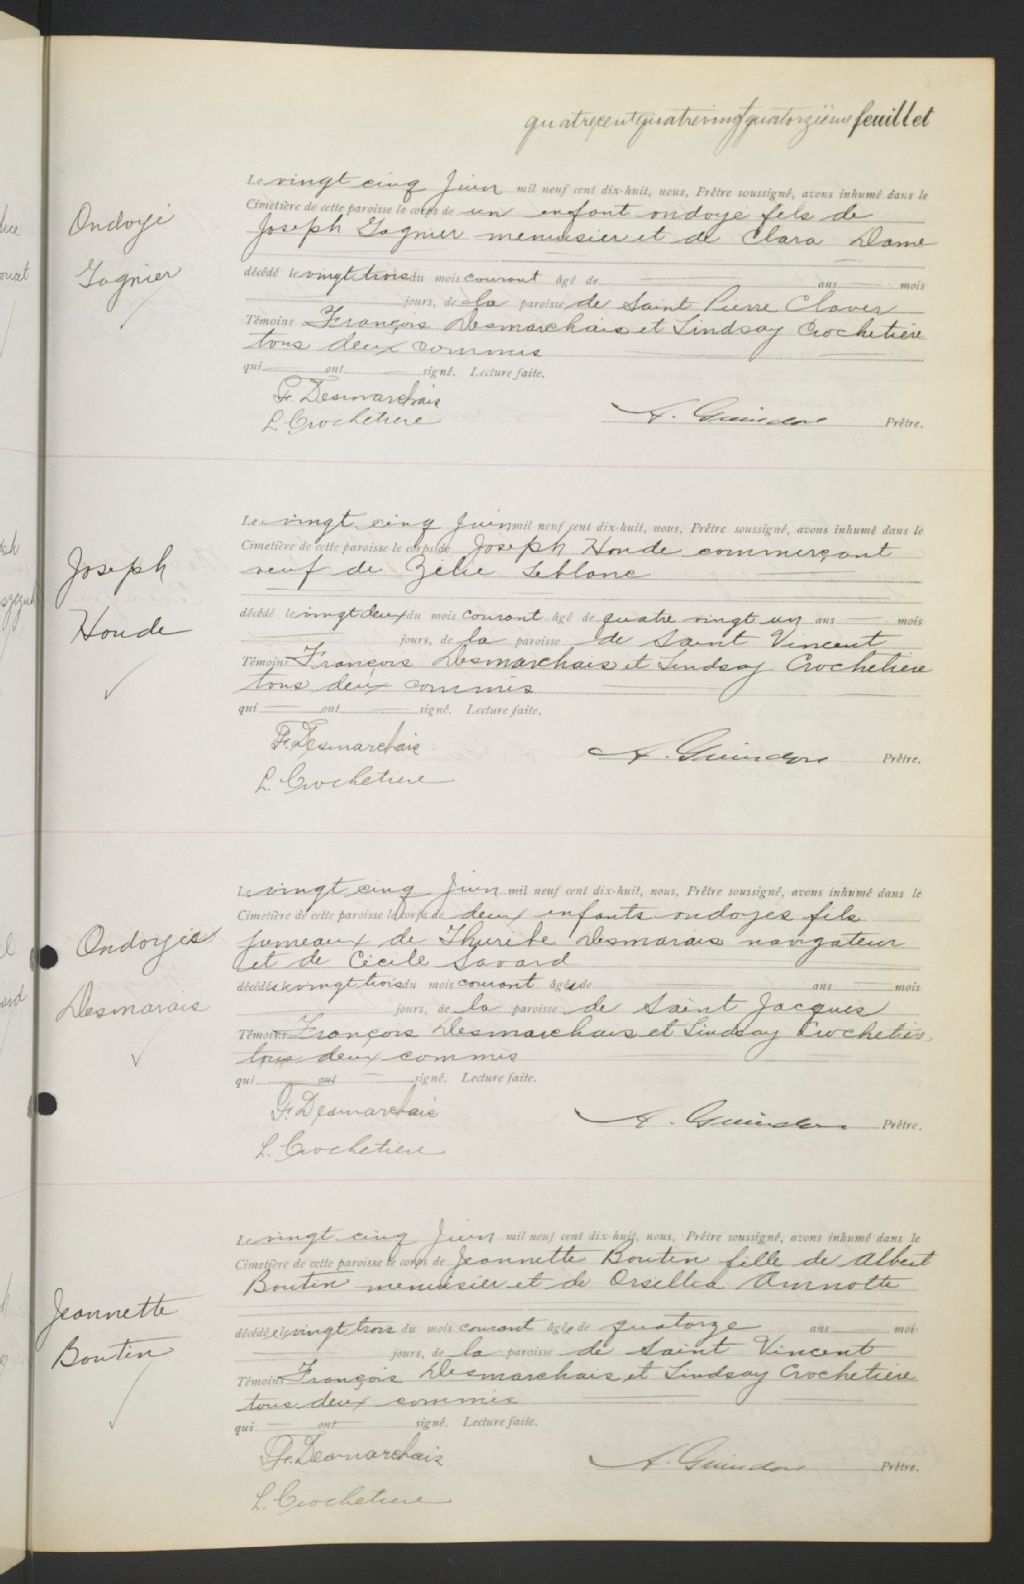 quatrecentquatrevingtquatorzième feuillet
Ondoyé
Gagnier
Le vingt cinq Juin mil neuf cent dix-huit, nous, Prêtre soussigné, avons inhumé dans le
Cimetière de cette paroisse le corps de un enfant ondoyé fils de
Joseph Gagnier menuisier et de Clara Dame
décédé le vingt trois du mois courant âgé de ans mois
jours, de la paroisse de Saint Pierre Claver
Témoins François Desmarchais et Lindsay Crochetière
tous deux commis
qui ont signé. Lecture faite.
F. Desmarchais
L. Crochetiere
A. Guindon Prêtre.
Joseph
Houde
Le vingt cinq Juin mil neuf cent dix-huit, nous, Prêtre soussigné, avons inhumé dans le
Cimetière de cette paroisse le corps de Joseph Houde commerçant
veuf de Zélie Leblanc
décédé le vingt deux du mois courant âgé de quatre vingt un ans mois
jours, de la paroisse de Saint Vincent
Témoins François Desmarchais et Lindsay Crochetiere
tous deux commis
qui ont signé. Lecture faite.
F. Desmarchais
L. Crochetiere
A. Guindon Prêtre.
Ondoyés
Desmarais
Le vingt cinq Juin mil neuf cent dix-huit, nous, Prêtre soussigné, avons inhumé dans le
Cimetière de cette paroisse le corps de deux enfants ondoyés fils
jumeaux de Thuribe Desmarais navigateur
et de Cécile Savard
décédés le vingt trois du mois courant âgés de ans mois
jours, de la paroisse de Saint Jacques
Témoins François Desmarchais et Lindsay Crochetière
tous deux commis
qui ont signé. Lecture faite.
F. Desmarchais
L. Crochetiere
A. Guindon Prêtre.
Jeannette
Boutin
Le vingt cinq Juin mil neuf cent dix-huit, nous, Prêtre soussigné, avons inhumé dans le
Cimetière de cette paroisse le corps de Jeannette Boutin fille de Albert
Boutin menuisier et de Orsellia
décédée le vingt trois du mois courant âgée de quatorze ans moi
jours, de la paroisse de Saint Vincent
Témoins François Desmarchais et Lindsay Crochetiere
tous deux commis
qui ont signé. Lecture faite.
F. Desmarchais
L. Crochetiere
A. Guindon Prêtre.